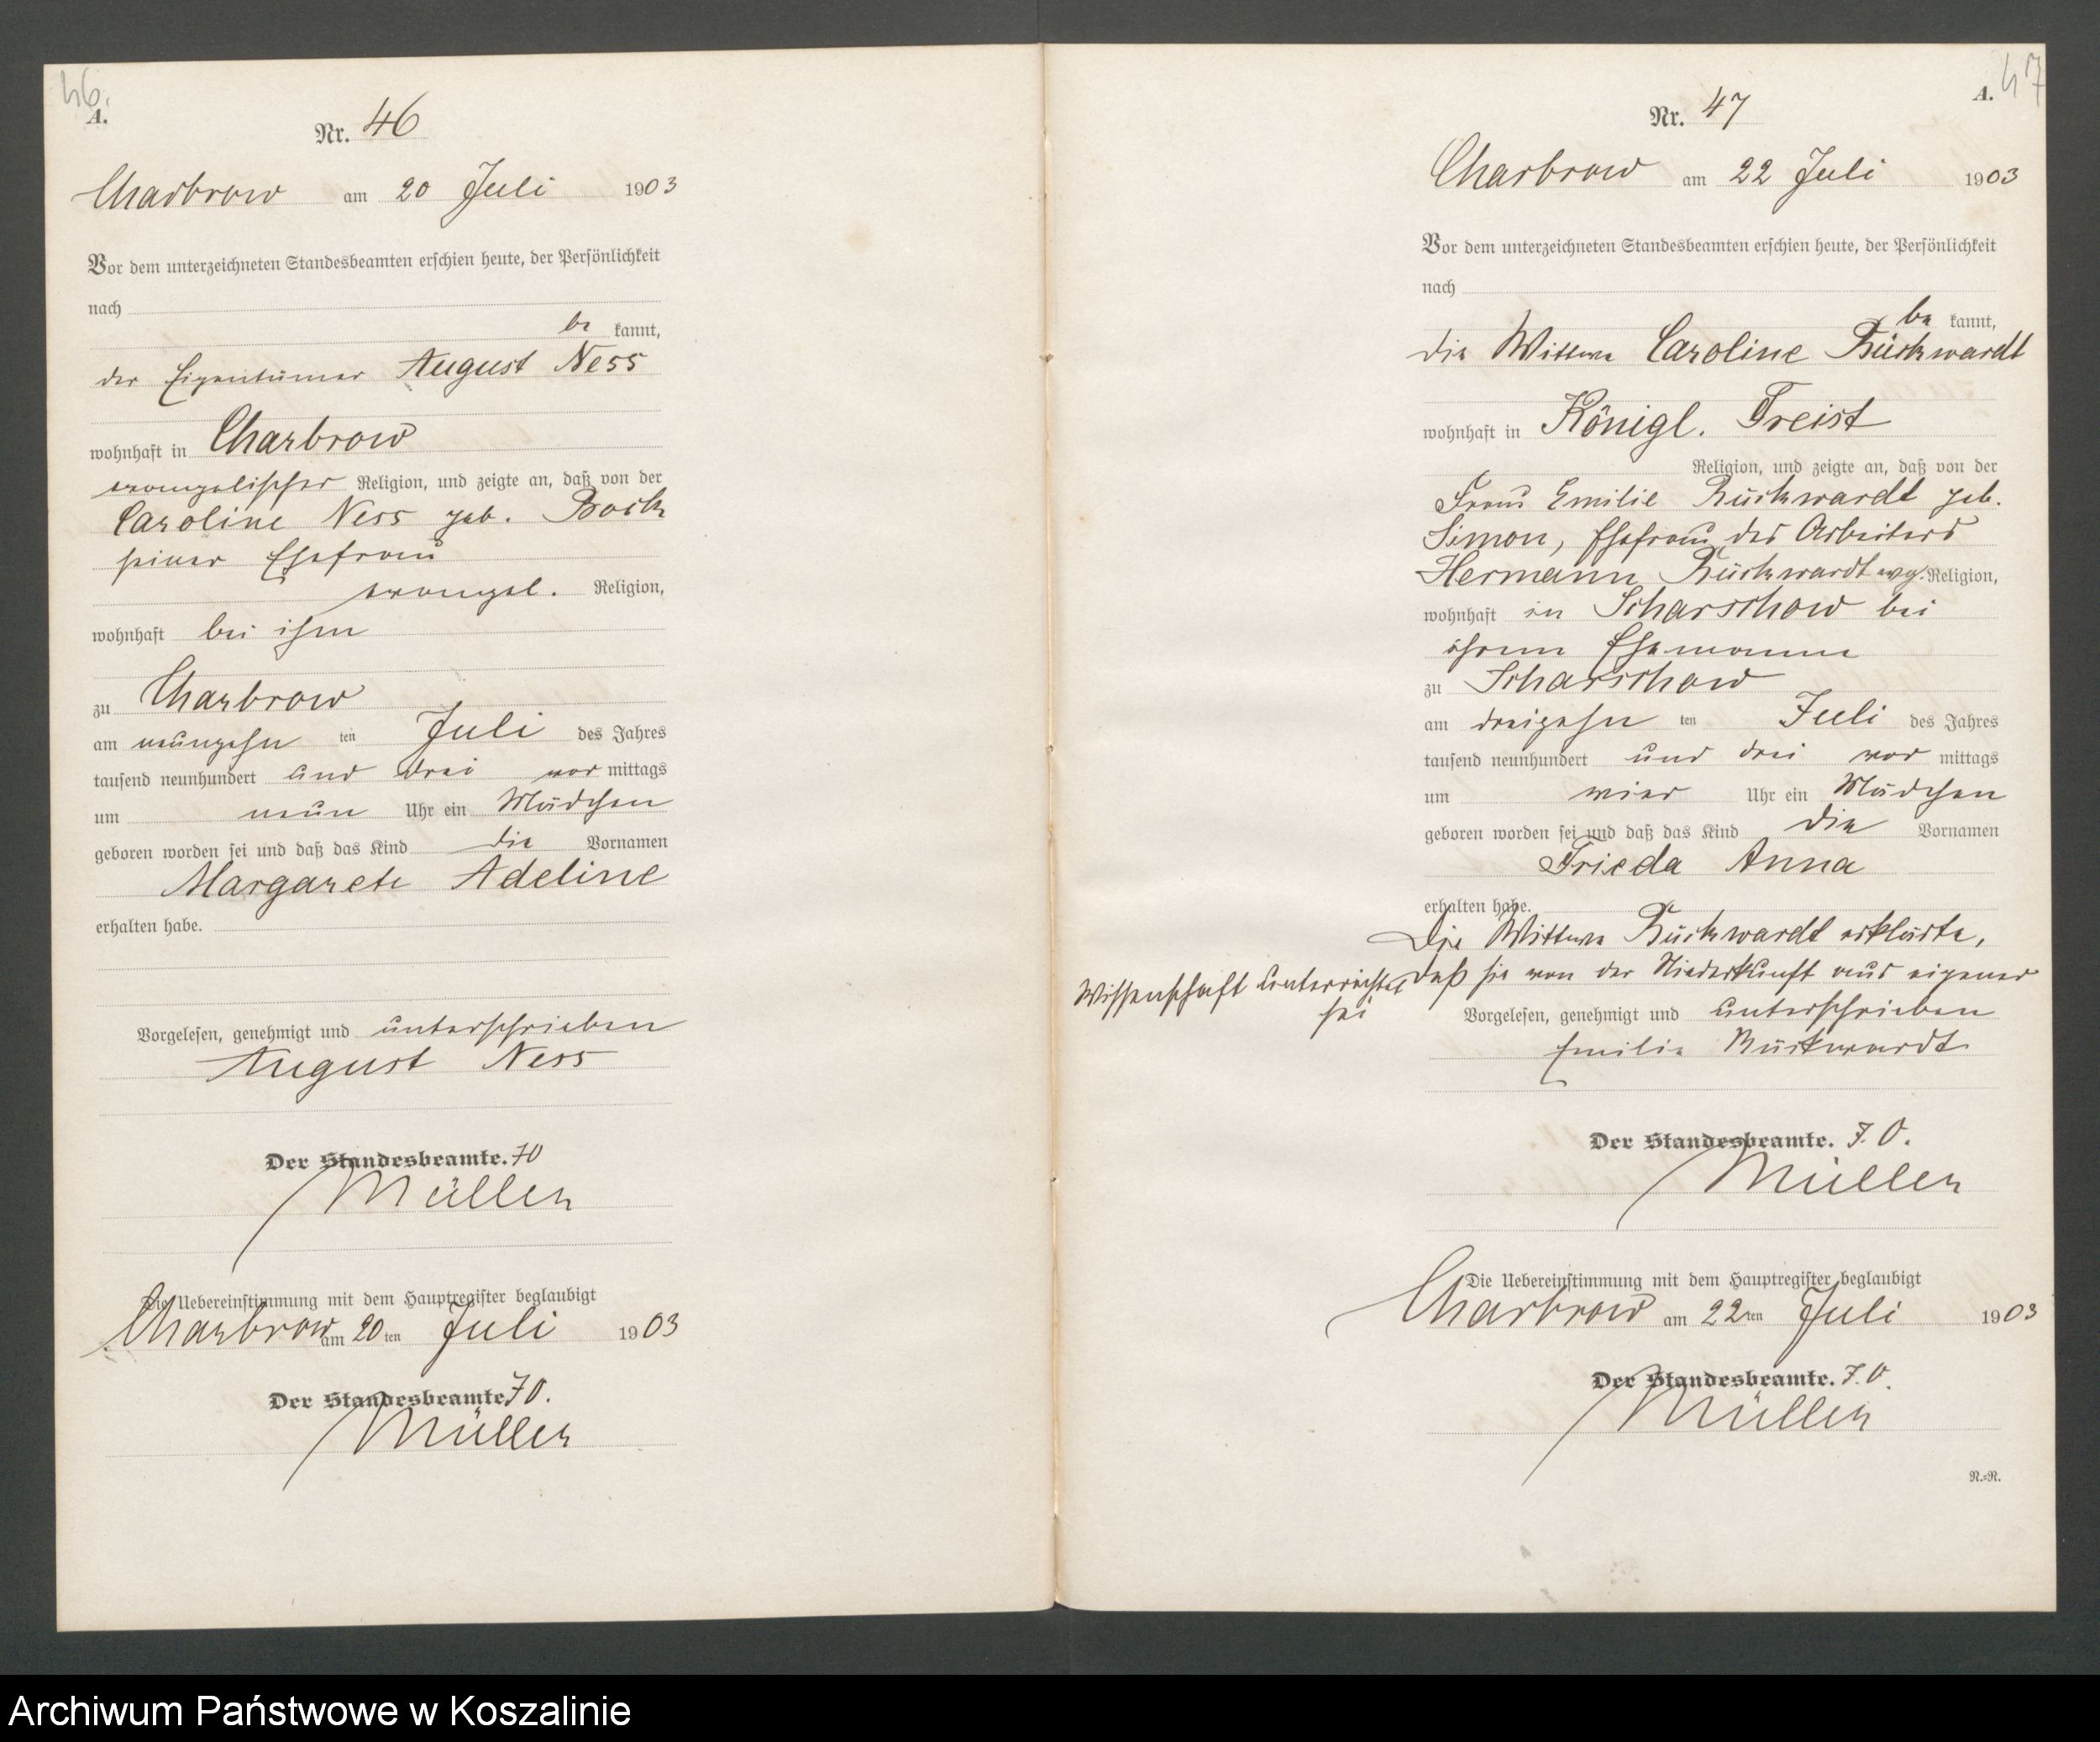 46.
A.
Nr. 46
Charbrow am 20 Juli 1903
Vor dem unterzeichneten Standesbeamten erschien heute, der Persönlichkeit
nach
be kannt,
der Eigentümer August Ness
wohnhaft in Charbrow
evangelischer Religion, und zeigte an, daß von der
Caroline Ness geb. Bock
seiner Ehefrau
evangel. Religion,
wohnhaft bei ihm
zu Charbrow
am neunzehn ten Juli des Jahres
tausend neunhundert und drei vor mittags
um neun Uhr ein Mädchen
geboren worden sei und daß das Kind die Vornamen
Margarete Adeline
erhalten habe.
Vorgelesen, genehmigt und unterschrieben
August Ness
Der Standesbeamte.
Müller
Die Uebereinstimmung mit dem Hauptregister beglaubigt
Charbrow am 20ten Juli 1903
Der Standesbeamte
Müller
47
A.
Nr. 47
Charbrow am 22 Juli 1903
Vor dem unterzeichneten Standesbeamten erschien heute, der Persönlichkeit
nach
be kannt,
die Wittwe Caroline Rückwardt
wohnhaft in Königl. Freist
Religion, und zeigte an, daß von der
Frau Emilie Rückwardt geb.
Simon, Ehefrau des Arbeiters
Hermann Rückwardt evg. Religion,
wohnhaft in Scharschow bei
ihrem Ehemanne
zu Scharschow
am dreizehn ten Juli des Jahres
tausend neunhundert und drei vor mittags
um vier Uhr ein Mädchen
geboren worden sei und daß das Kind die Vornamen
Frieda Anna
erhalten habe.
Die Wittwe Rückwardt erklärte,
daß sie von der Niederkunft aus eigener
Wissenschaft unterrichtet
sei
Vorgelesen, genehmigt und unterschrieben
Emilie Rückwardt
Der Standesbeamte.
Müller
Die Uebereinstimmung mit dem Hauptregister beglaubigt
Charbrow am 22ten Juli 1903
Der Standesbeamte.
Müller
N.=R.
Archiwum Państwowe w Koszalinie